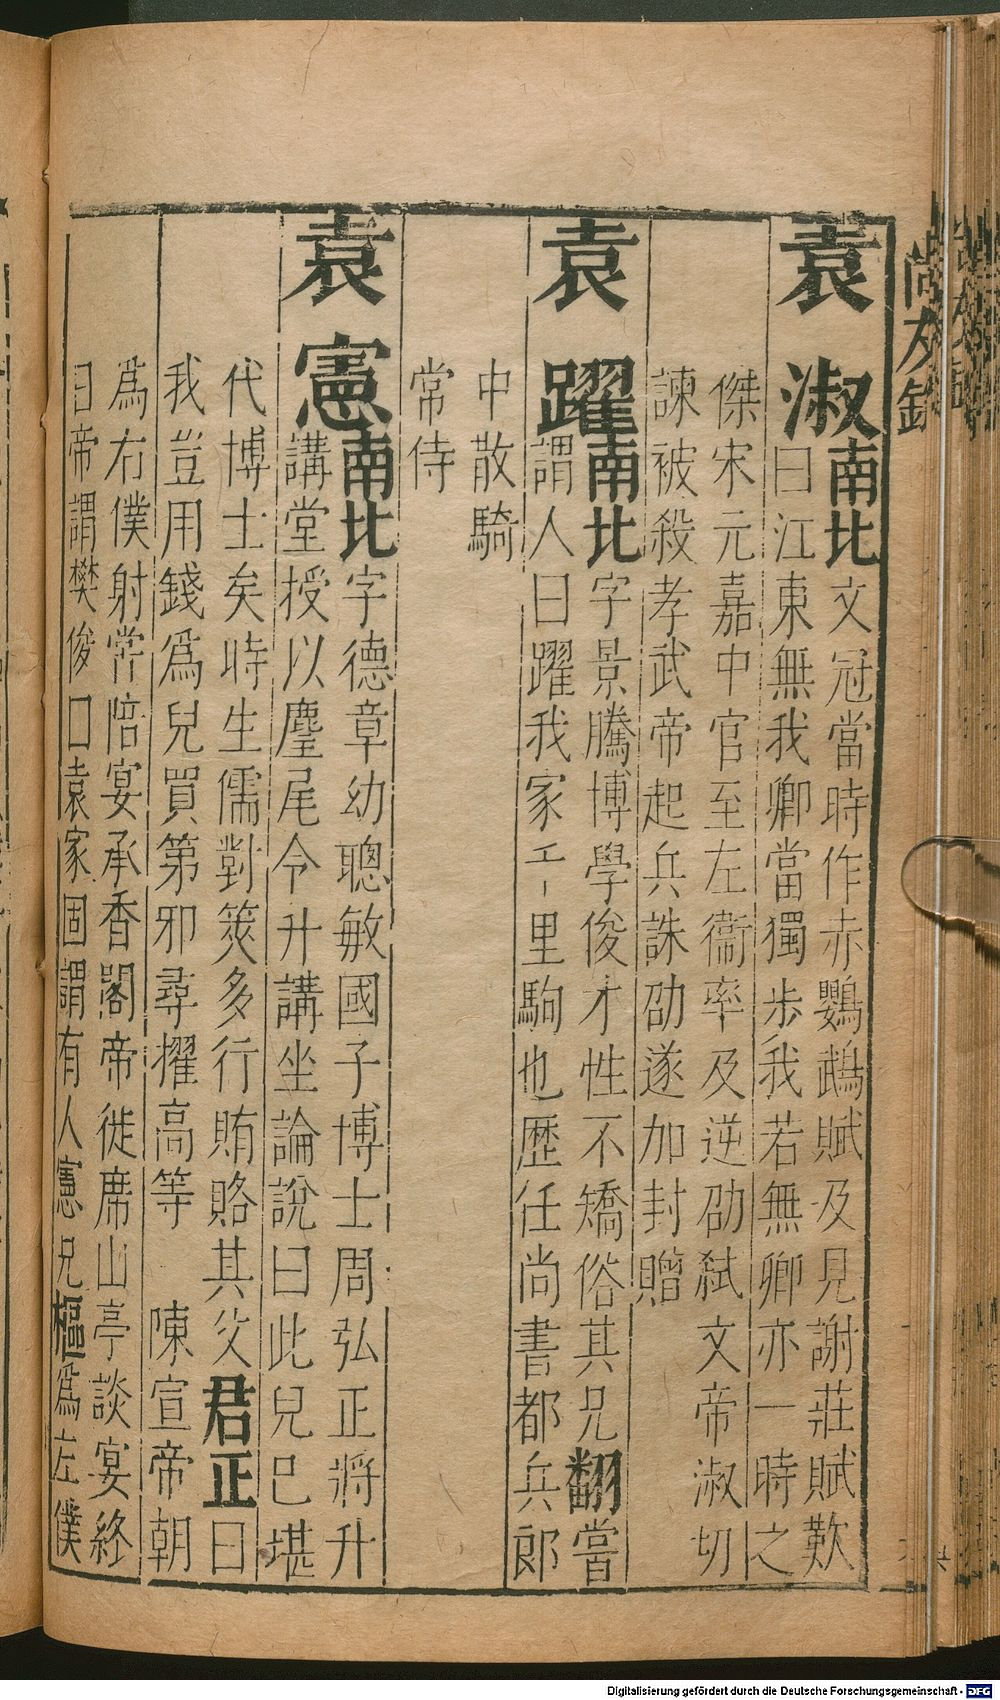 尚友錄
袁淑南北文冠當時作赤鸚鵡賦及見謝莊賦歎
曰江東無我卿當獨步我若無卿亦一時之
傑宋元嘉中官至左衞率及逆劭弑文帝淑切
諫被殺孝武帝起兵誅劭遂加封贈
袁躍南北字景騰博學俊才性不矯俗其兄翻嘗
謂人曰躍我家里駒也歴任尚書都兵郎
中散騎
常侍
袁憲南北字德章幼聰敏國子博士周弘正將升
講堂授以麈尾令升講坐論說曰此兒巳堪
代博士矣時生儒對筴多行賄賂其父君正曰
我豈用錢爲兒買第邪尋擢高等 陳宣帝朝
爲右僕射嘗陪宴承香閣帝徙席山亭談宴終
日帝謂樊俊口袁家固謂有人憲兄樞爲左僕
Digitalisierung gefördert durch die Deutsche Forschungsgemeinschaft - DFG